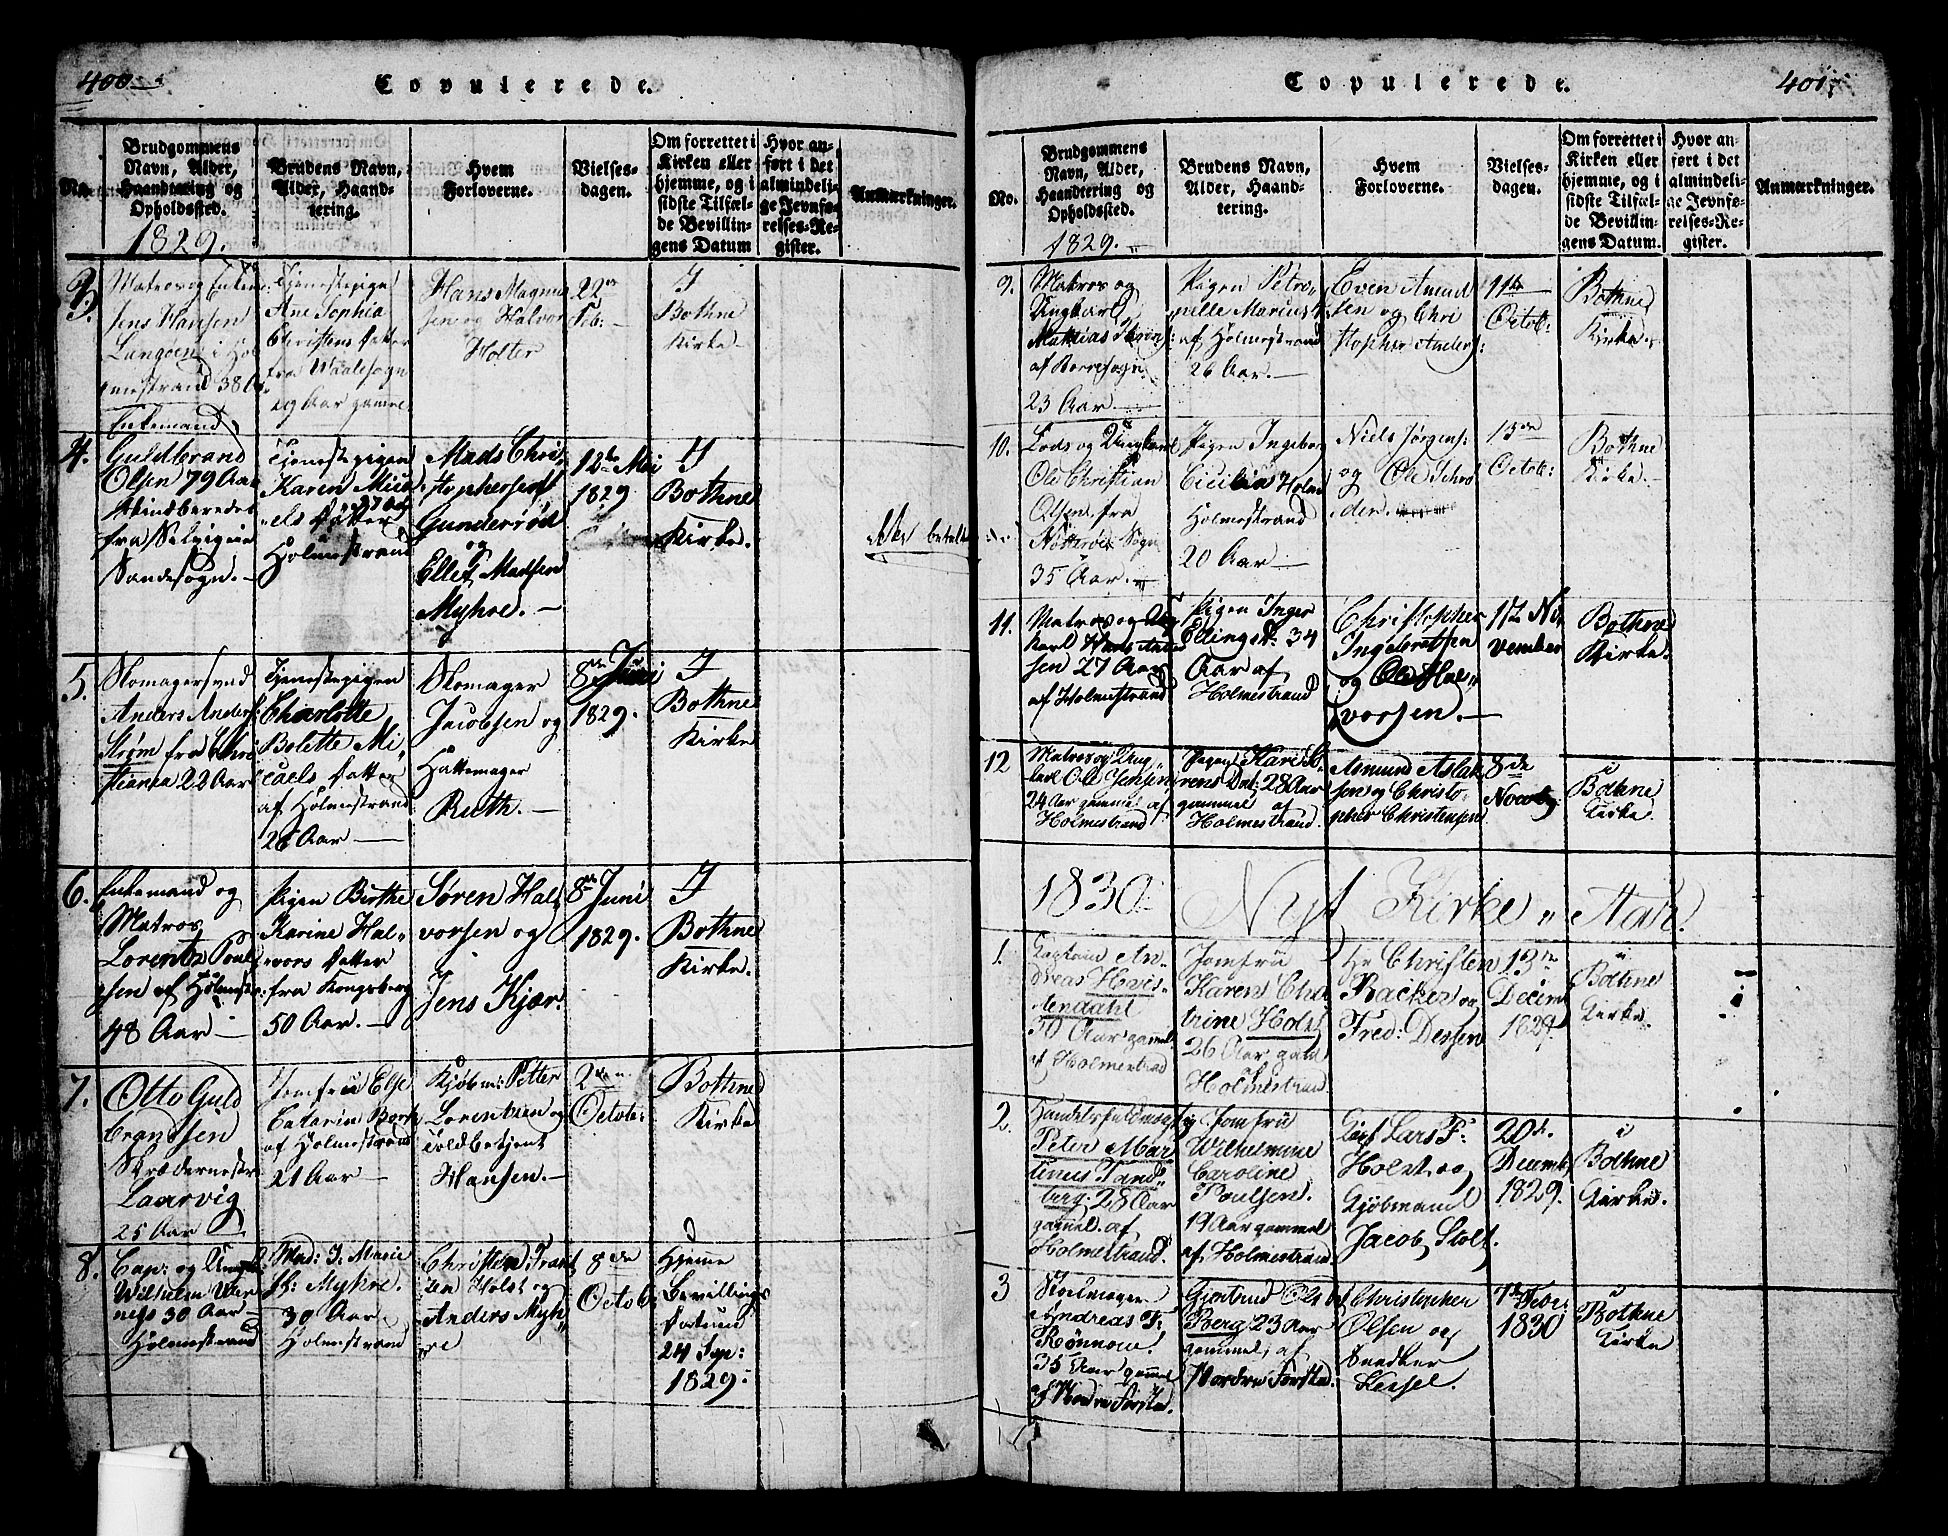 400
Copulerede.
No.
Brudgommens
Navn, Alder,
Haandtering og
Opholdssted.
1829.
Brudens Navn,
Alder, Haand-
tering.
Hvem
Forloverne.
Vielses-
dagen.
Om forrettet i
Kirken eller
hjemme, og i
sidste Tilfæl-
de Bevillin-
gens Datum
Hvor an-
ført i det
almindeli-
ge Jevnfø-
relses-Re-
gister.
Anmærkninger.
3.
Matros og Enkem
Jens Hansen
Langøen i Hol
mestrand 38 A
Enkemand
Tjenestepige
Ane Sophia
Christens Datter
fra Waalesogn
29 Aar gamel
Hans Magnus
sen og Halvor
Holter
22de
Feb:
I
Bothne
Kirke
4.
Guldbrand
Olsen 79 Aar
fra Selvigiue
Sandesogn.
Tjenestepigen
Karen Mica
els Datter
27 Aar
Holmestrand
Mads Chri
stophersen
Gunderød
og
Ellef Madsen
Myhre.
12te Mai
1829
I
Bothne
Kirke.
betalt
5.
Skomagersvend
Anders Anders:
Strøm fra Chri
stiania 22 Aar
Tjenestepigen
Charlotte
Bolette Mi
caels Datter
af Holmestrand
26 Aar
Skomager
Jacobsen og
Hattemager
Ruth.
8de Juni
1829.
I
Bothne
Kirke
6.
Enkemand og
Matros
Lorentz Poul
sen af Holmestr:
48 Aar
Pigen Birthe
Karine Hal„
vors Datter
fra Kongsberg
50 Aar.
Søren Hal
vorsen og
Jens Kjær.
8de Juni
1829.
I
Bothne
Kirke.
7.
Otto Guld
brandsen
Skrædermestr
Laurvig
25 Aar
Jomfru Else
Catarin Bork
af Holmestrand
21 Aar
Kjøbm: Petter
Lorentzen og
Toldbetjent
Hansen.
2den
Octob:
Bothne
Kirke
8.
Cap: og Ungk
Wilhelm War
ness 30 Aar
Holmestrand
Mad: I. Marie
Myhre.
30 Aar.
Holmestrand
Christen Frant
zen Holst og
Anders Myh„
re
8de
Octob:
Hjemme
Bevillings
Datum
24 Sep:
1829.
401
Copulerede.
No.
Brudgommens
Navn, Alder,
Haandtering og
Opholdssted.
1829.
Brudens Navn,
Alder, Haand-
tering.
Hvem
Forloverne.
Vielses-
dagen.
Om forrettet i
Kirken eller
hjemme, og i
sidste Tilfæl-
de Bevillin-
gens Datum.
Hvor an-
ført i det
almindeli-
ge Jevnfø-
relses-Re-
gister.
Anmærkninger.
9.
Matros og
Ungkarl
Mathias
af Borresogn
23 Aar
Pigen Petro„
nille Marius
af Holmestrand
26 Aar.
Even Amund
sen og Chri
stopher Anders:
11te
Octob:
Bothne
Kirke.
10.
Lods og Ungkarl
Ole Christian
Olsen, fra
Nøtterøe Sogn
35 Aar.
Pigen Ingebor
Cicilia Holm
Holmestrand
20 Aar
Niels Jørgens:
og Ole Schrø
der.
13de
Octob:
Bothne
Kirke.
11.
Matros og Ung
karl Hans
sen 27 Aar
af Holmestrand
Pigen Inger
Ellings D: 34
Aar af
Holmestrand
Christopher
Ingebretsen
og Ole Hal„
vorsen.
1te No
vember
Bothne
Kirke.
12
Matros og Ung
karl Ole Jensen
24 Aar gammel af
Holmestrand
Pigen Kari Sø
rens Dat: 28 Aar
gammel af
Holmestrand.
Asmund Aslak
sen og Christo„
pher Christensen
8de
Novbr:
i
Bothne
Kirke.
1830
Nyt Kirke„ Aar.
1.
Capitain An„
dreas Hvis„
tendahl
30 Aar gammel
af Holmestrand
Jomfrü
Karen Cha
trine Holst
26 Aar gaml
Holmestrand
Hr Christen
Backer og
Fred: Dessen
13de
Decem
1829.
i
Bothne
Kirke.
2.
Handelsfuldmægtig
Peter Mar
tinus Tand„
berg. 28 Aar
gammel. af
Holmestrand.
Jomfrü
Wilhelmine
Caroline
Poulsen.
19 Aar gammel
af Holmestrand
Lars F:
Holst. og
Kjøbmand
Jacob Stolt.
20de.
Decemb
1829.
i
Bothne
Kirke.
3
Skolmager
Andreas F:
Rønnow.
35 Aar gammel
af Nordre
Gjertrud
Berg. 23 Aar
gammel, af
Nordre
Christopher
Olsen og
Snedker
Kessel.
7de Feb:
1830
i
Bothne
Kirke